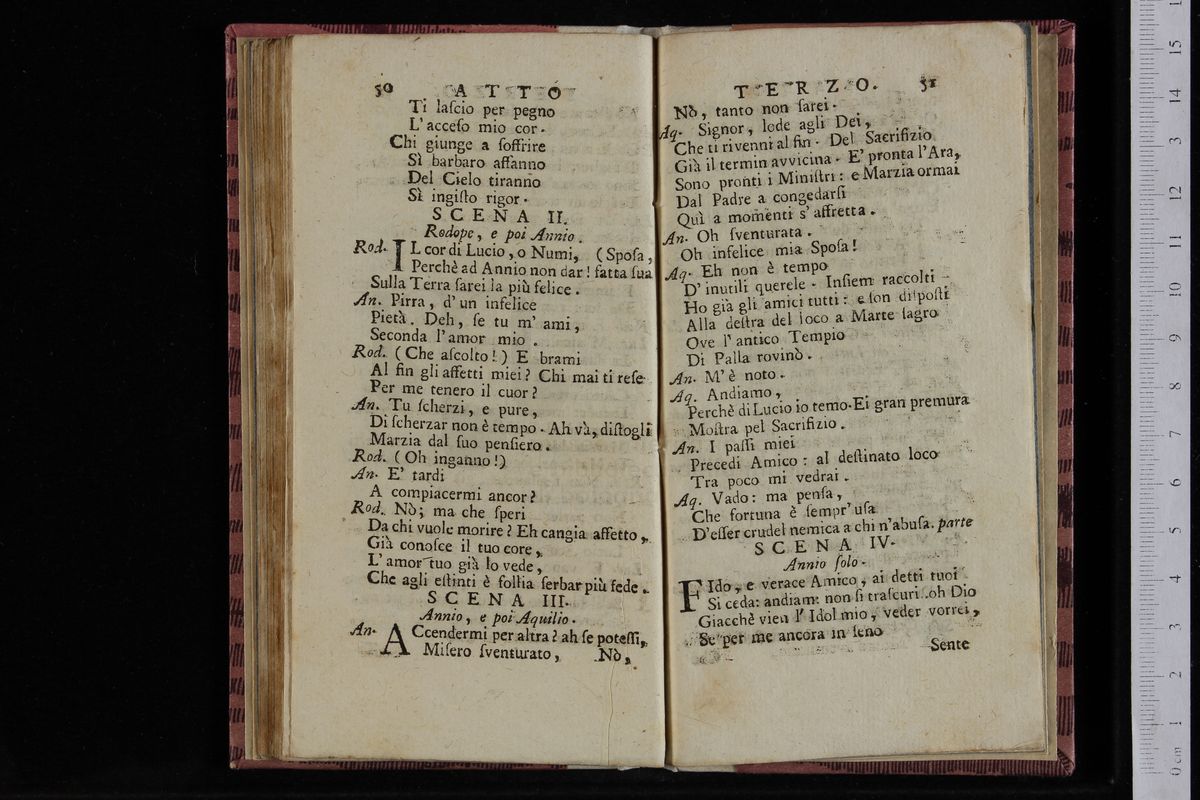 50 ATTO
Ti laſcio per pegno
L'acceſo mio cor.
Chi giunge a ſoffrire
Sì barbaro affanno
Del Cielo tiranno
Sì ingiſto rigor.
SCENA II.
Rodope, e poi Annio.
Rod. IL cor di Lucio, o Numi, (Spoſa,
Perchè ad Annio non dar! fatta ſua
Sulla Terra ſarei la più felice.
An. Pirra, d'un infelice
Pietà. Deh, ſe tu m'ami,
Seconda l'amor mio.
Rod. (Che aſcolto!) E brami
Al fin gli affetti miei? Chi mai ti reſe
Per me tenero il cuor?
An. Tu ſcherzi, e pure,
Di ſcherzar non è tempo. Ah và, diſtogli
Marzia dal ſuo penſiero.
Rod. (Oh inganno!)
An. E' tardi
A compiacermi ancor?
Rod. Nò; ma che ſperi
Da chi vuole morire? Eh cangia affetto,
Già conoſce il tuo core,
L'amor tuo già lo vede,
Che agli eſtinti è follia ſerbar più fede.
SCENA III.
Annio, e poi Aquilio.
An. ACcendermi per altra? ah ſe poteſſi,
Miſero ſventurato, Nò,
TERZO. 51
Nò, tanto non ſarei.
Aq. Signor, lode agli Dei,
Che ti rivenni al fin. Del Sacrifizio
Già il termin avvicina. E' pronta l'Ara,
Sono pronti i Miniſtri: e Marzia ormai
Dal Padre a congedarſi
Quì a momenti s'affretta.
An. Oh ſventurata.
Oh infelice mia Spoſa!
Aq. Eh non è tempo
D'inutili querele. Inſiem raccolti
Ho già gli amici tutti: e ſon diſpoſti
Alla deſtra del loco a Marte ſagro
Ove l'antico Tempio
Di Palla rovinò.
An. M'è noto.
Aq. Andiamo,
Perchè di Lucio io temo. Ei gran premura
Moſtra pel Sacrifizio.
An. I paſſi miei
Precedi Amico: al deſtinato loco
Tra poco mi vedrai.
Aq. Vado: ma penſa,
Che fortuna è ſempr'uſa
D'eſſer crudel nemica a chi n'abuſa. parte
SCENA IV.
Annio ſolo.
FIdo, e verace Amico, ai detti tuoi
Si ceda: andiam: non ſi traſcuri. oh Dio
Giacchè vien l'Idol mio, veder vorrei,
Se per me ancora in ſeno
Sente